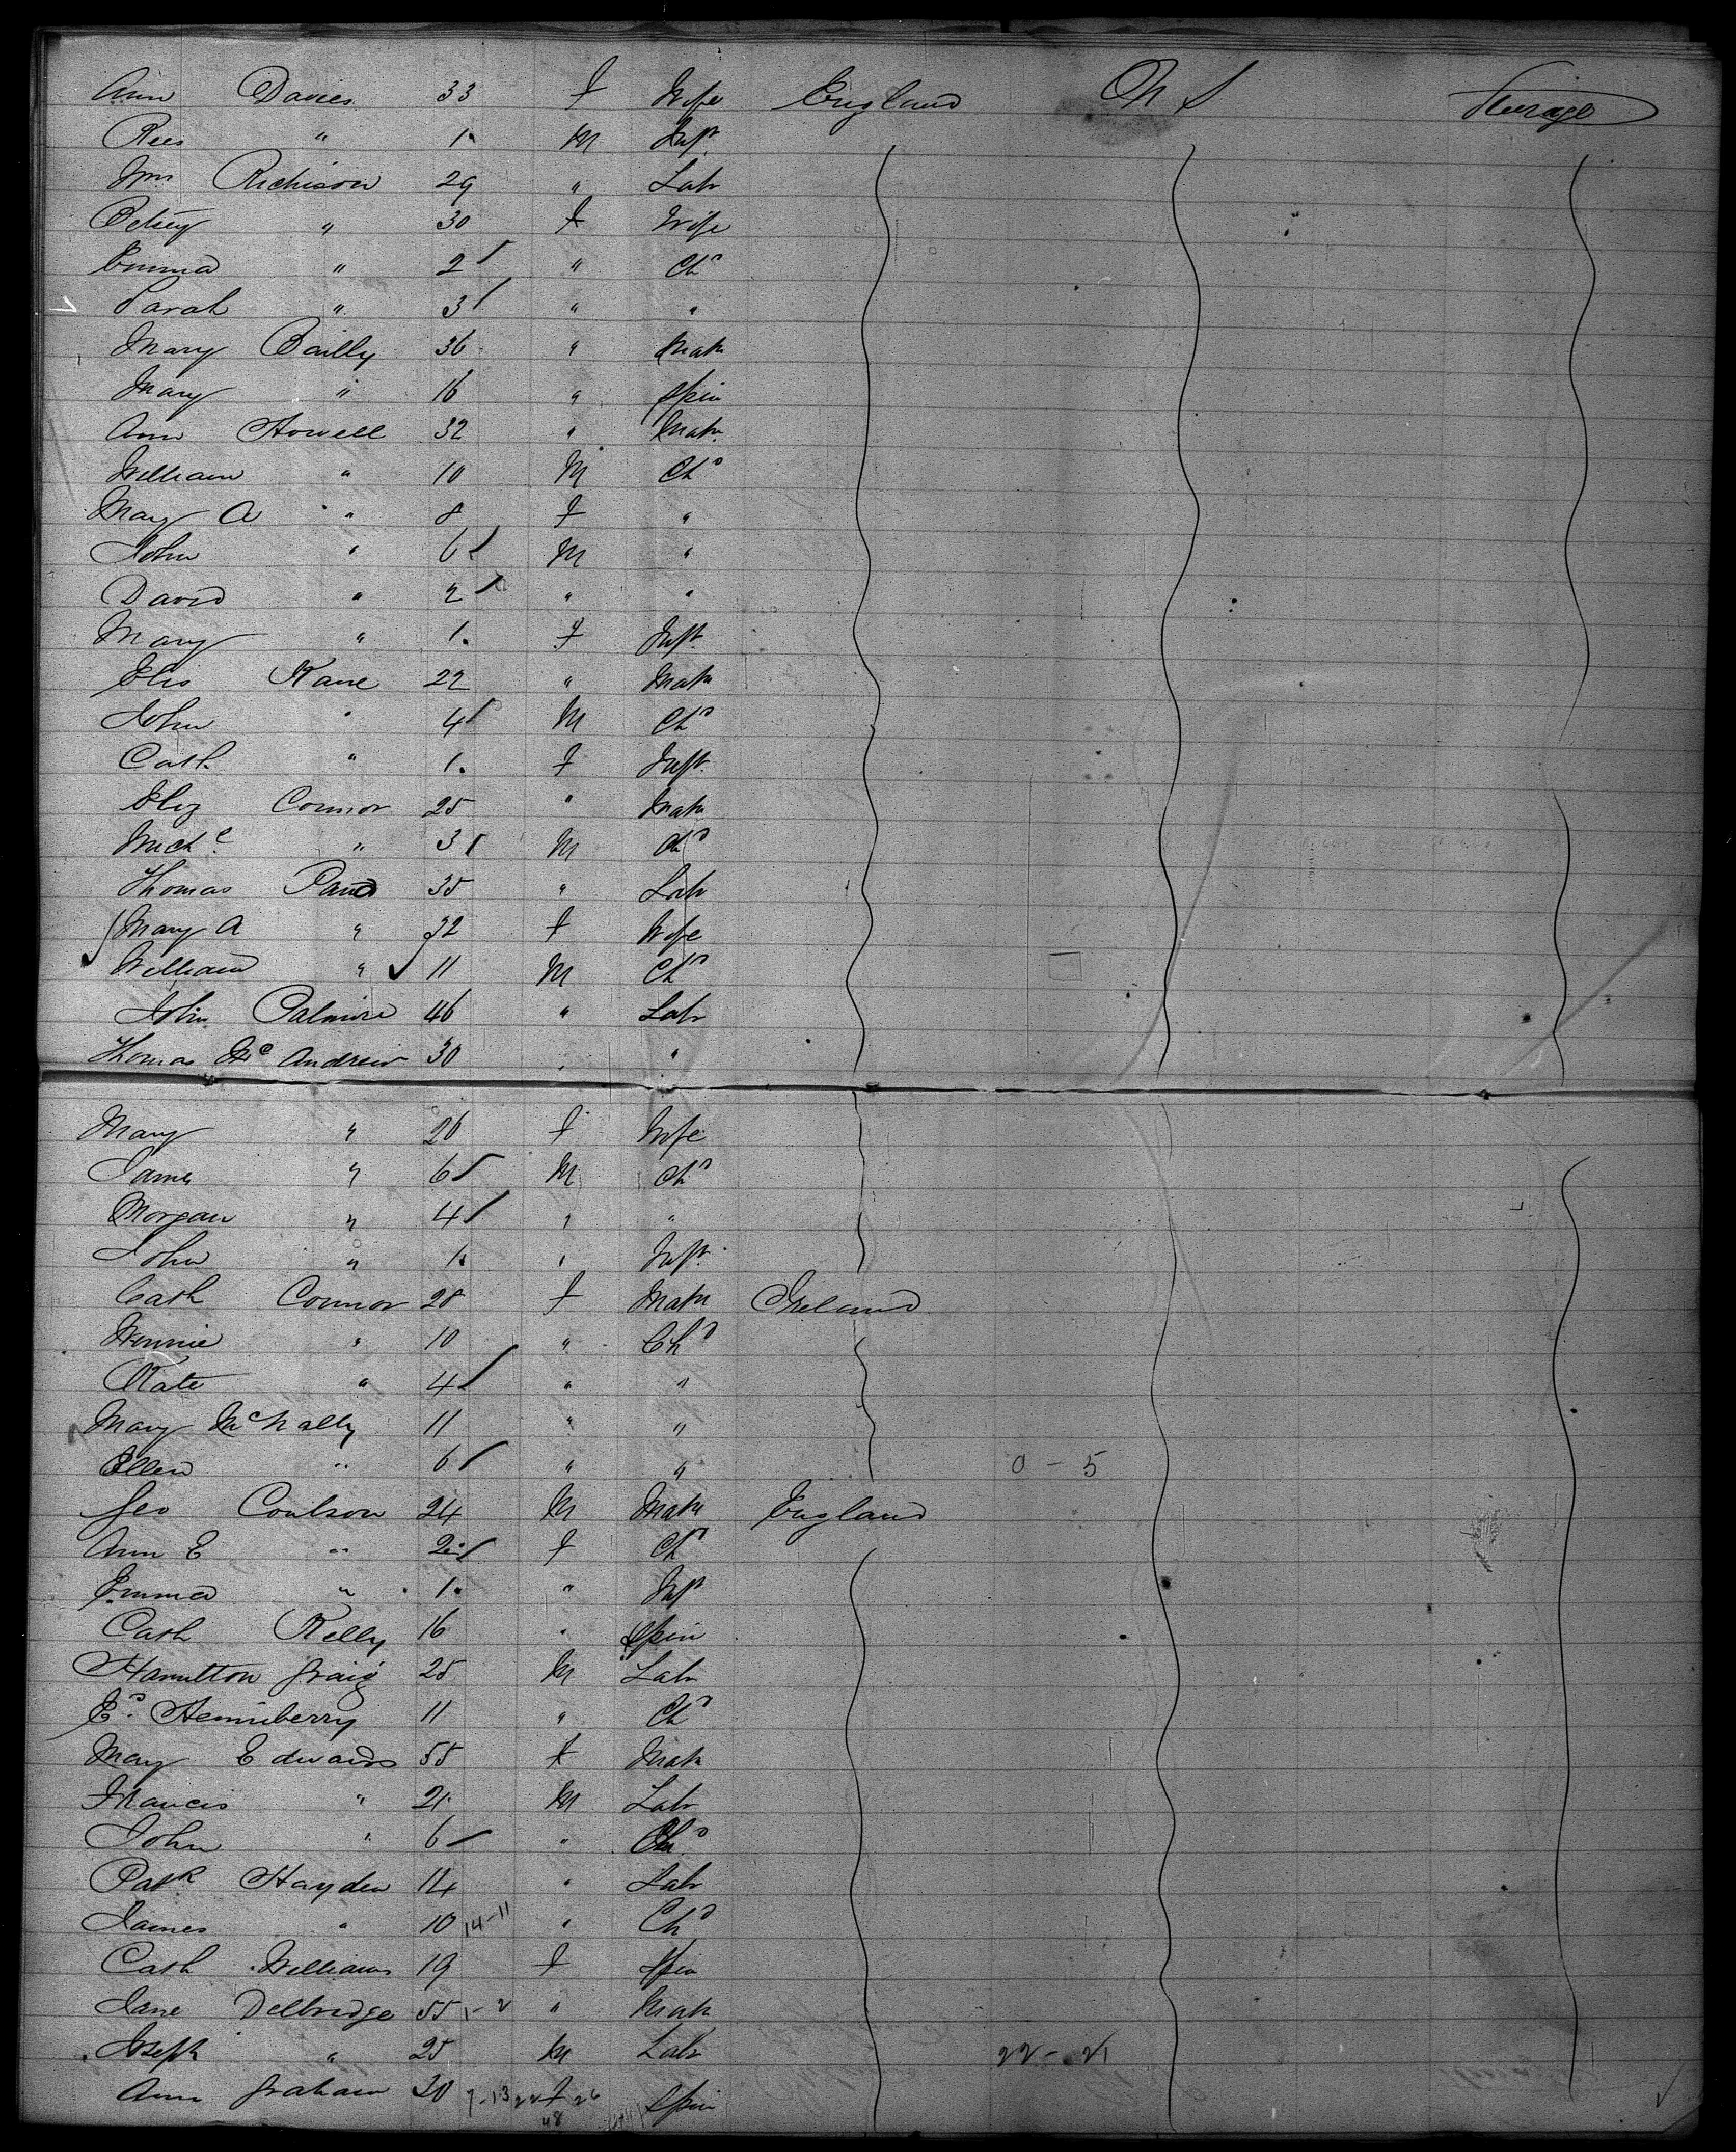 Ann Davies 33 f Wife England U S Steerage
Rees " 1 M Inft
Wm Richison 29 " Labr
Betsey " 30 f Wife
Emma " 2 " Chd
Sarah " 3 " "
Mary Bailly 36 " Matn
Mary " 16 " Spin
Ann Howell 32 " Matn
William " 10 M Chd
Mary A " 8 f "
John " 6 M "
David " 2 " "
Mary " 1 f Inft
Elis Kane 22 " Matn
John " 4 M Chd
Cath " 1 f Inft
Eliz Connor 25 " Matn
Michl " 3 M Chd
Thomas 35 " Labr
Mary A " 32 f Wife
William " 11 M Chd
John Palmire 46 " Labr
Thomas Mc Andrew 30 " "
Mary " 26 f Wife
James " 6 M Chd
Morgan " 4 " "
John " 1 " Inft
Cath Connor 28 f Matn Ireland
Winnie " 10 " Chd
Kate " 4 " "
Mary McNally 11 " "
Ellen " 6 " " 0 - 5
Geo Coulson 24 M Matn England
Ann E " 2 f Chd
Emma " 1 " Inft
Cath Kelly 16 " Spin
Hamilton Graig 25 M Labr
Ed Henneberry 11 " Chd
Mary Edwards 55 f Matn
Francis " 21 M Labr
John " 6 " Chd
Patk Hayden 14 " Labr
James " 10 14-11 " Chd
Cath Williams 19 f Spin
Jane Delbridge 55 1-2 " Matn
Joseph " 25 M Labr 22 - 21
Ann Graham 30 7-13 22 f 26 Spin
48